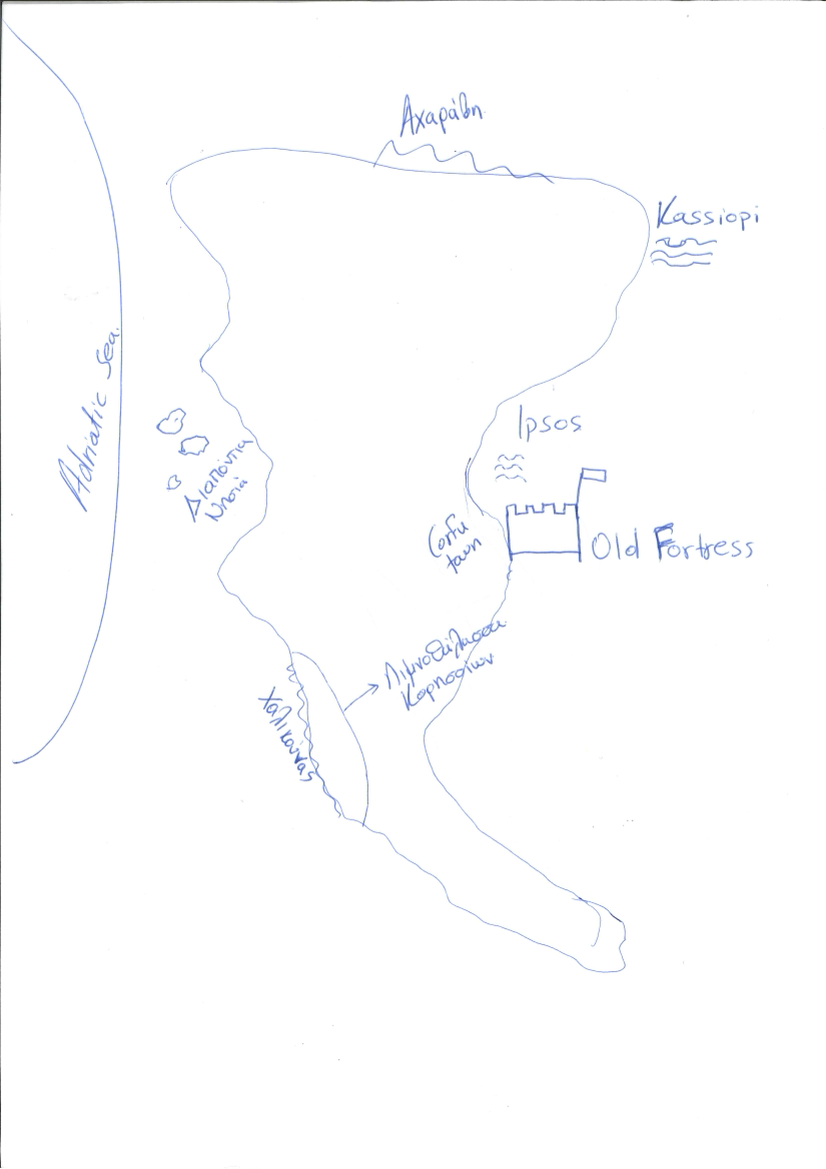 Αχαράβη
Kassiopi
Adriatic Sea.
Ipsos
Διαπόντια
Νησιά
Corfu
town
Old Fortress
Λιμνοθάλασσα
Κορησσίων
Χαλικούνας